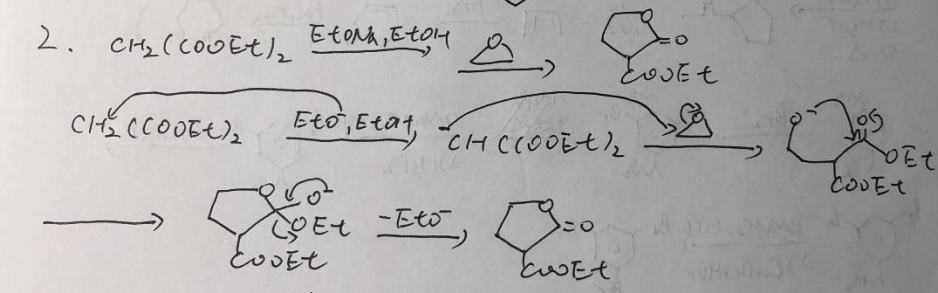 2. CH₂(COOEt)₂ EtONa, EtOH O O =O COOEt
CH₂(COOEt)₂ EtO⁻, EtOH, ⁻CH(COOEt)₂ O O⁻ O OEt COOEt
O O⁻ OEt COOEt -EtO⁻, O =O COOEt